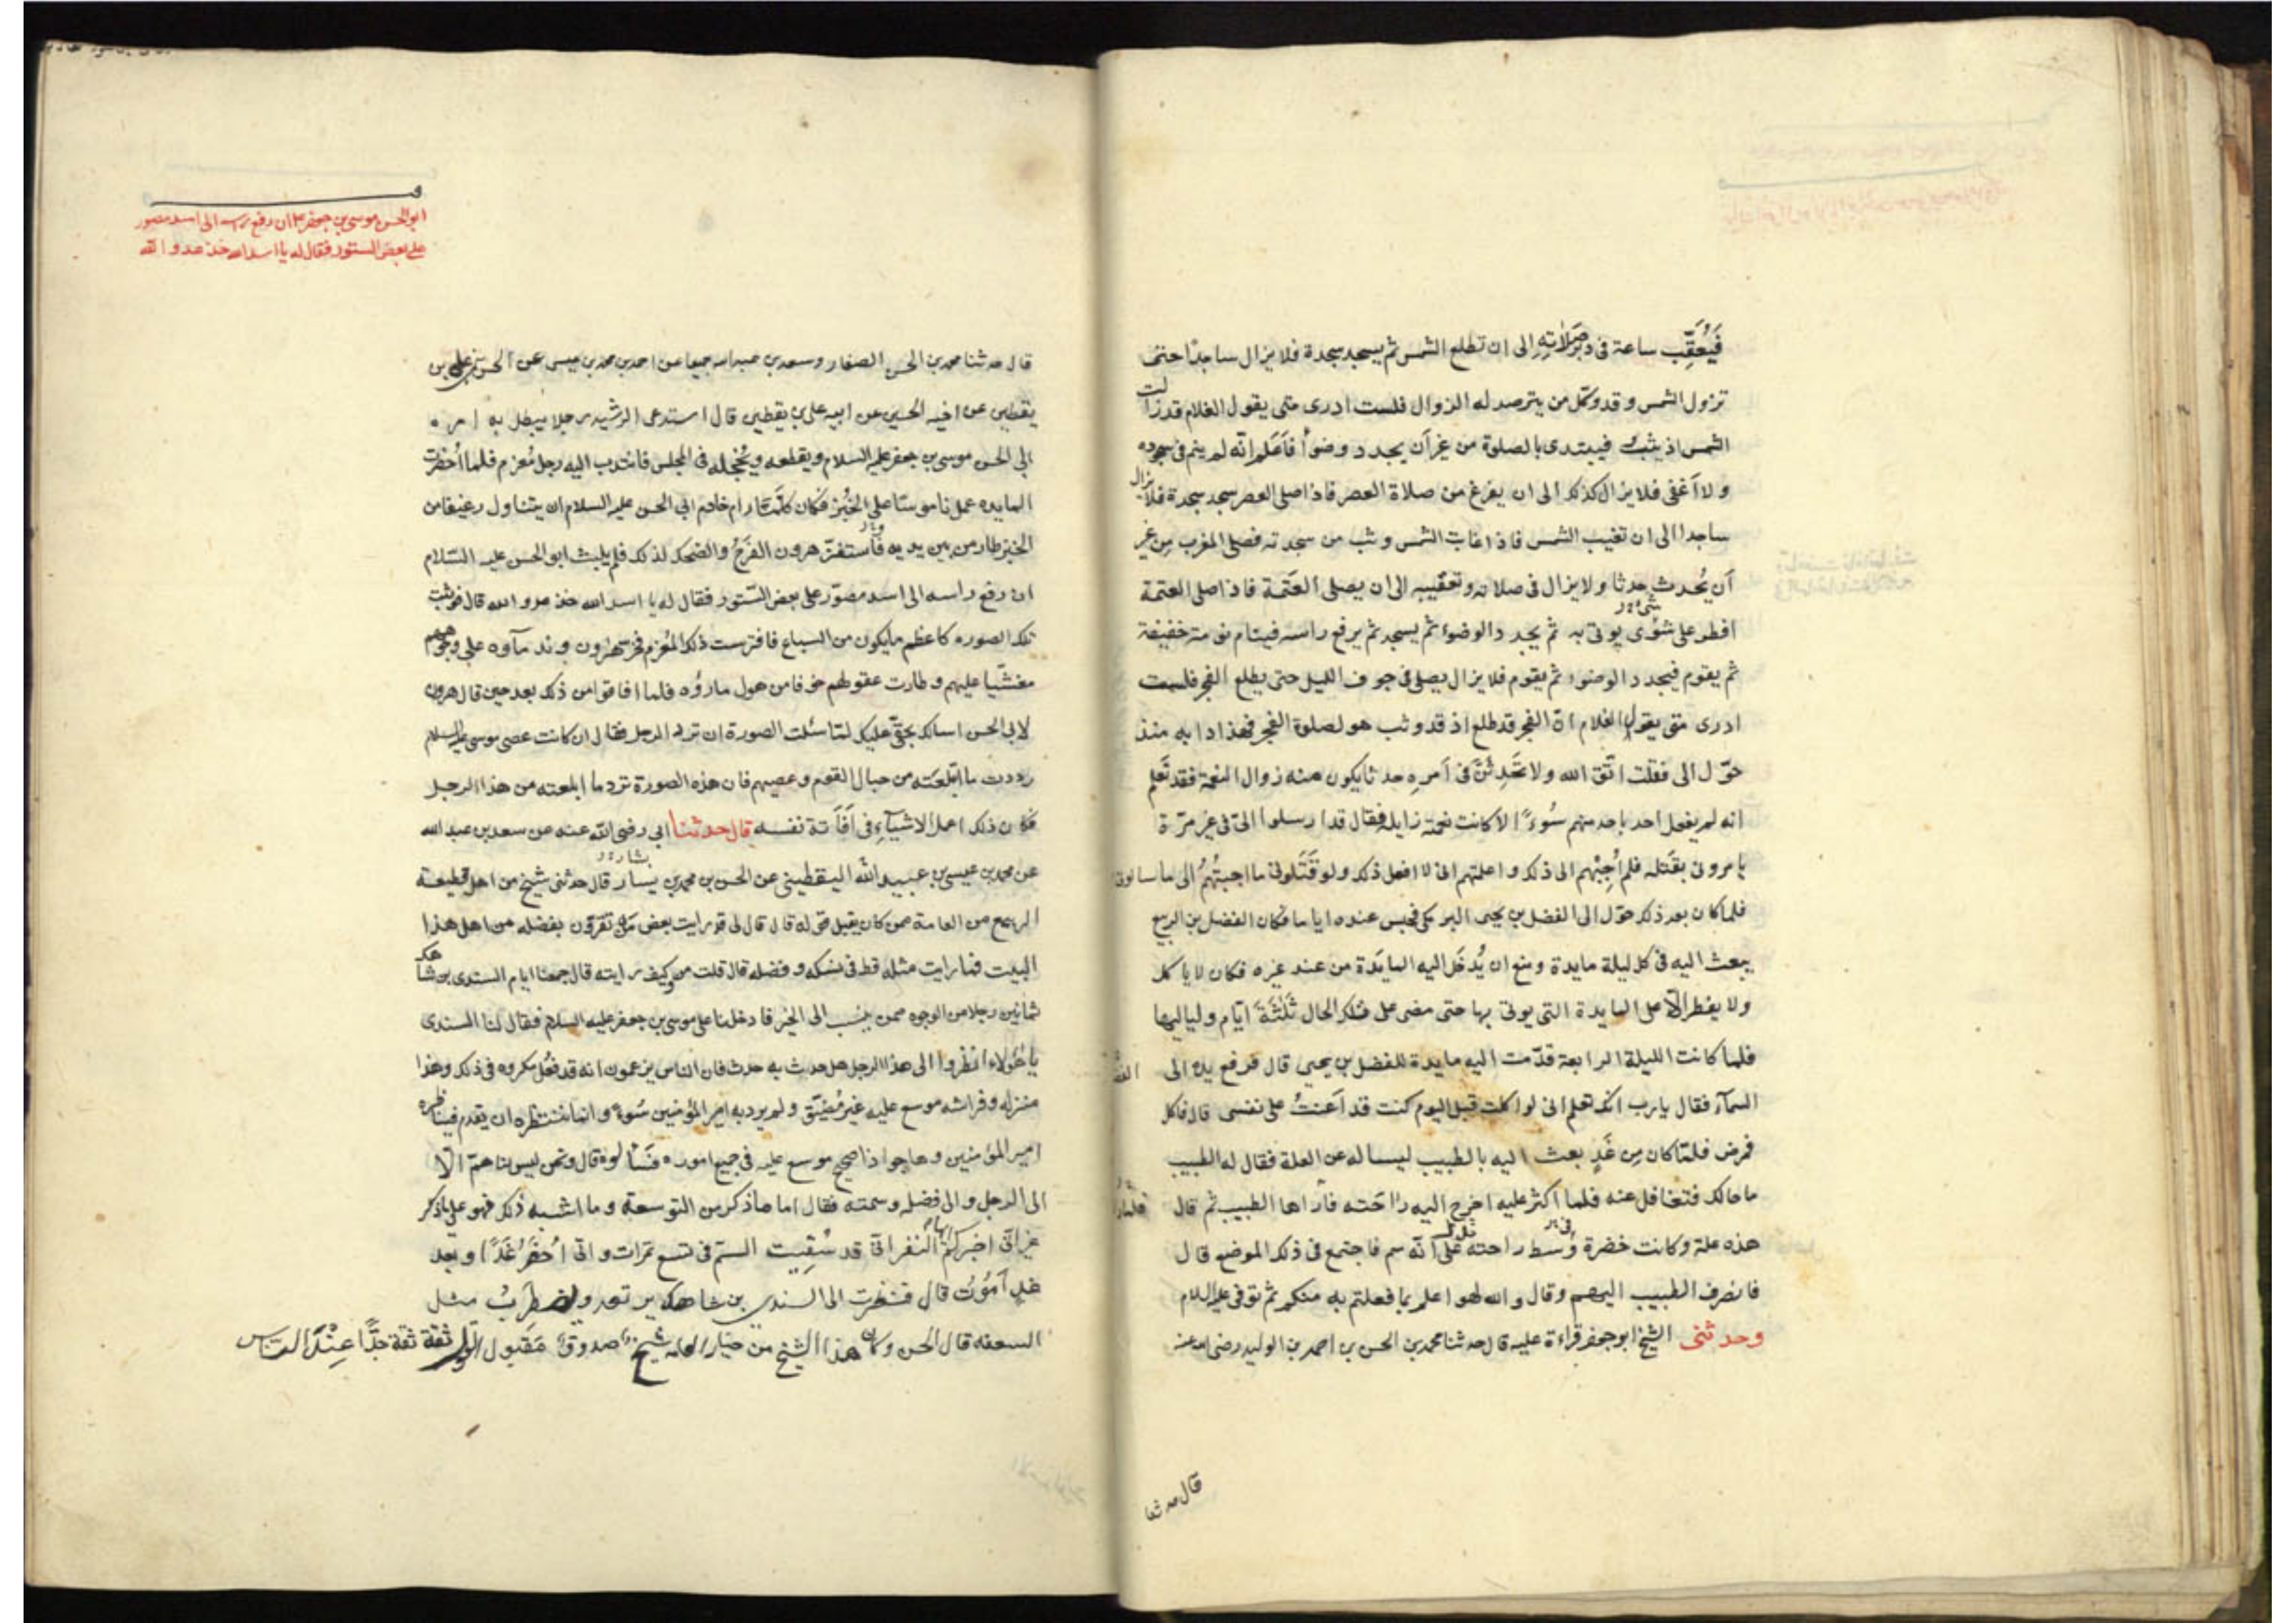 فَيُعَقِّب ساعة فى دبر صَلاٰتِهِ الى ان تطلع الشمس ثم يسجد سجدة فلا يزال ساجدًا حتى
تزول الشمس و قد وكّل من يترصد له الزوال فلست ادرى متى يقول الغلام قد زالت
الشمس اذ يثب فيبتدى بالصلوة من غير أن يجدد وضوأ فاَعلم انّه لم ينم فى سجوده
ولا اَغفى فلا يزال كذلك الى ان يفرغ من صلاة العصر فاذا صلى العصر سجد سجدة فلا يزال
ساجدا الى ان تغيب الشمس فاذا غابت الشمس وثب من سجدته فصلى المغرب مِن غير
اَن يُحدث حدثا ولا يزال فى صلاته وتعقيبه الى ان يصلى العَتَمة فاذا صلى العتمة
افطر على شوى يوتى به ثم يجدد الوضوء ثم يسجد ثم يرفع راسه فينام نومته خفيفة
ثم يقوم فيجدد الوضوء ثم يقوم فلا يزال يصلى فى جوف الليل حتى يطلع الفجر فلست
ادرى متى يقول الغلام انّ الفجر قد طلع اذ قد وثب هو لصلوة الفجر فهذا دابه منذ
حوّل الى فقلت اتّق الله ولا تحُدِثنَّ فى اَمرِه حدثا يكون منه زوال النعمة فقد تَعلم
انه لم يفعل احد باحد منهم سُوءًا الا كانت نعمته زايلة فقال قد ارسلوا الىّ فى غير مرّة
يامرونى بقَتله فلم اُجِبْهم الى ذلك واعلمتهم انى لا افعل ذلك ولو قَتَلونى ما اجبتُهُم الى ما سالونى
فلما كان بعد ذلك حوّل الى الفضل بن يحيى البرمكى فحبس عنده اياما فكان الفضل بن الربيع
يبعث اليه فى كل ليلة مايدة ومنع ان يُدخَل اليه المايَدة من عند غيره فكان لا ياكل
ولا يفطر الّا على المايدة التى يوتى بها حتى مضى على تلك الحال ثَلٰثَة ايّام ولياليها
فلما كانت الليلة الرابعة قدّمت اليه مايدة للفضل بن يحيى قال فرفع يده الى
السمآء فقال يا رب انك تعلم انى لو اكلت قبل اليوم كنت قد اَعنتُ على نفسى قال فاكل
فمرض فلمّا كان مِن غَدٍ بعث اليه بالطبيب ليساله عن العلة فقال له الطبيب
ما حالك فتغافل عنه فلما اكثر عليه اخرج اليه راحَته فاَراها الطبيب ثم قال
هذه علة وكانت خضرة وَسط راحته تدل على انّه سم فاجتمع فى ذلك الموضع قال
فانصرف الطبيب اليهم وقال والله لهو اعلم بما فعلتم به منكم ثم توفى عليه السلام
وحدثنى الشيخ ابوجعفر قراءة عليه قال حدثنا محمد بن الحسن بن احمد بن الوليد رضى الله عنه
قال حدثنا
ابوالحسن موسى بن جعفر ع ان رفع راسه الى اسد مصور
على بعض الستور فقال له يا اسد الله خذ عدو الله
قال حدثنا محمد بن الحسن الصفار وسعد بن عبد الله جميعا عن احمد بن محمد بن عيسى عن الحسن بن على بن
يقطين عن اخيه الحسين عن ابيه على بن يقطين قال استدعى الرشيد رجلا يبطل به امر
ابى الحسن موسى بن جعفر عليه السلام ويقطعه ويُخجله فى المجلس فانتدب اليه رجل مُعزم فلما اُحضرت
المايده عمل ناموسا على الخُبْز فكان كلّما رام خادم ابى الحسن عليه السلام ان يتناول رغيفا من
الخبز طار من بين يديه فاستفزّ هرون الفرَحُ والضحك لذلك فلم يلبث ابو الحسن عليه السّلام
ان رفع راسه الى اسد مصوّر على بعض السّتور فقال له يا اسد الله خذ عدو الله قال فوثبت
تلك الصوره كاعظم مايكون من السباع فافترست ذلك المُعزم فخر هرون وندمآوه على وجوههم
مغشّيا عليهم وطارت عقولهم خوفا من هول ما رأوه فلما افاقوا من ذلك بعد حين قال هرون
لابى الحسن اسالك بحقّى عليك لمّا سئلت الصورة ان ترد الرجل فقال ان كانت عصى موسى عليه السلام
رددت ما ابتلعَته من حبال القوم وعصيهم فان هذه الصورة ترد ما ابلعته من هذا الرجل
فكان ذلك اعمل الاشيآءِ فى اَفَاتة نفسه قال حدثنا ابى رضى الله عنه عن سعد بن عبد الله
عن محمد بن عيسى بن عبيد الله اليقطينى عن الحسن بن محمد بن يسار قال حدثنى شيخ من اهل قطيعة
الربيع من العامة ممن كان يقبل قوله قال قال لى قد رايت بعض من تقرّون بفضله من اهل هذا
البيت فما رايت مثله قط فى نسكه وفضله قال قلت من وكيف رايته قال جمعنا ايام السندى بن شاهك
ثمانين رجلا من الوجوه ممن ينسب الى الخير فادخلنا على موسى بن جعفر عليه السلام فقال لنا السندى
يا هٰؤلاء انظروا الى هذا الرجل هل حدث به حدث فان الناس يزعمون انه قد فُعل مكروه فى ذلك وهذا
منزله وفراشه موسع عليه غير مُضيّق ولم يرد به امير المؤمنين سُوءً وانما ننتظره ان يقدم فيناظره
امير المؤمنين وها هو اذا صحيح موسع عليه فى جميع اموره فَسَألوه قال ونحن ليس لنا همّ الّا
الى الرجل والى فضله وسمته فقال اما ما ذكر من التوسعة وما اشبه ذلك فهو على ما ذكر
غير انّى اخبركم ايها النفر انّى قد سُقِيت السمّ فى تسع تمَرات وانّى اُخضَرُ غَدًا وبعد
غدٍ اَمُوتُ قال فنظرت الى السندى بن شاهك يرتعد ويضطرِبُ مثل
السعفه قال الحسن وكان هذا الشيخ من خيار العامه شيخ صدوق مَقبول القول ثقة ثقة جدًّا عِنْدَ النّاس